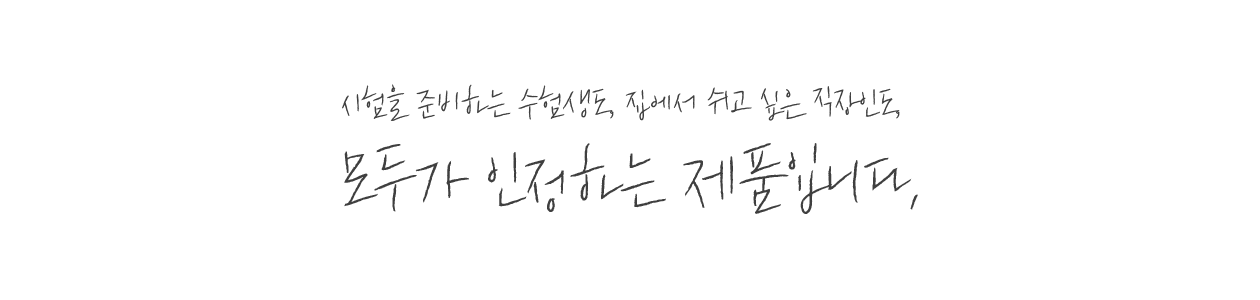 시험을 준비하는 수험생도, 집에서 쉬고 싶은 직장인도,
모두가 인정하는 제품입니다,